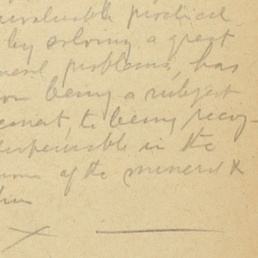 invaluable practical
by solving a great
problems, has
being a subject
to being recog-
indispensable in the
of the mineral &